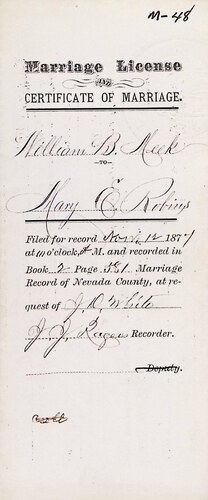 M-48
Marriage License
OR
CERTIFICATE OF MARRIAGE.
William B. Meek
-TO-
Mary E Robins
Filed for record Nov. 12 1877
at 10 o'clock, A M. and recorded in
Book 2 Page 581 Marriage
Record of Nevada County, at re-
quest of J. D. White
J. J. Rogers Recorder.
Deputy.